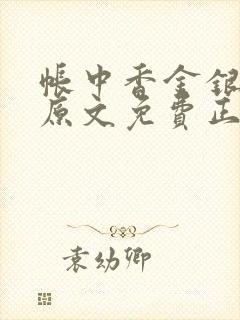 帳中香金銀
原文免費正
袁幼卿